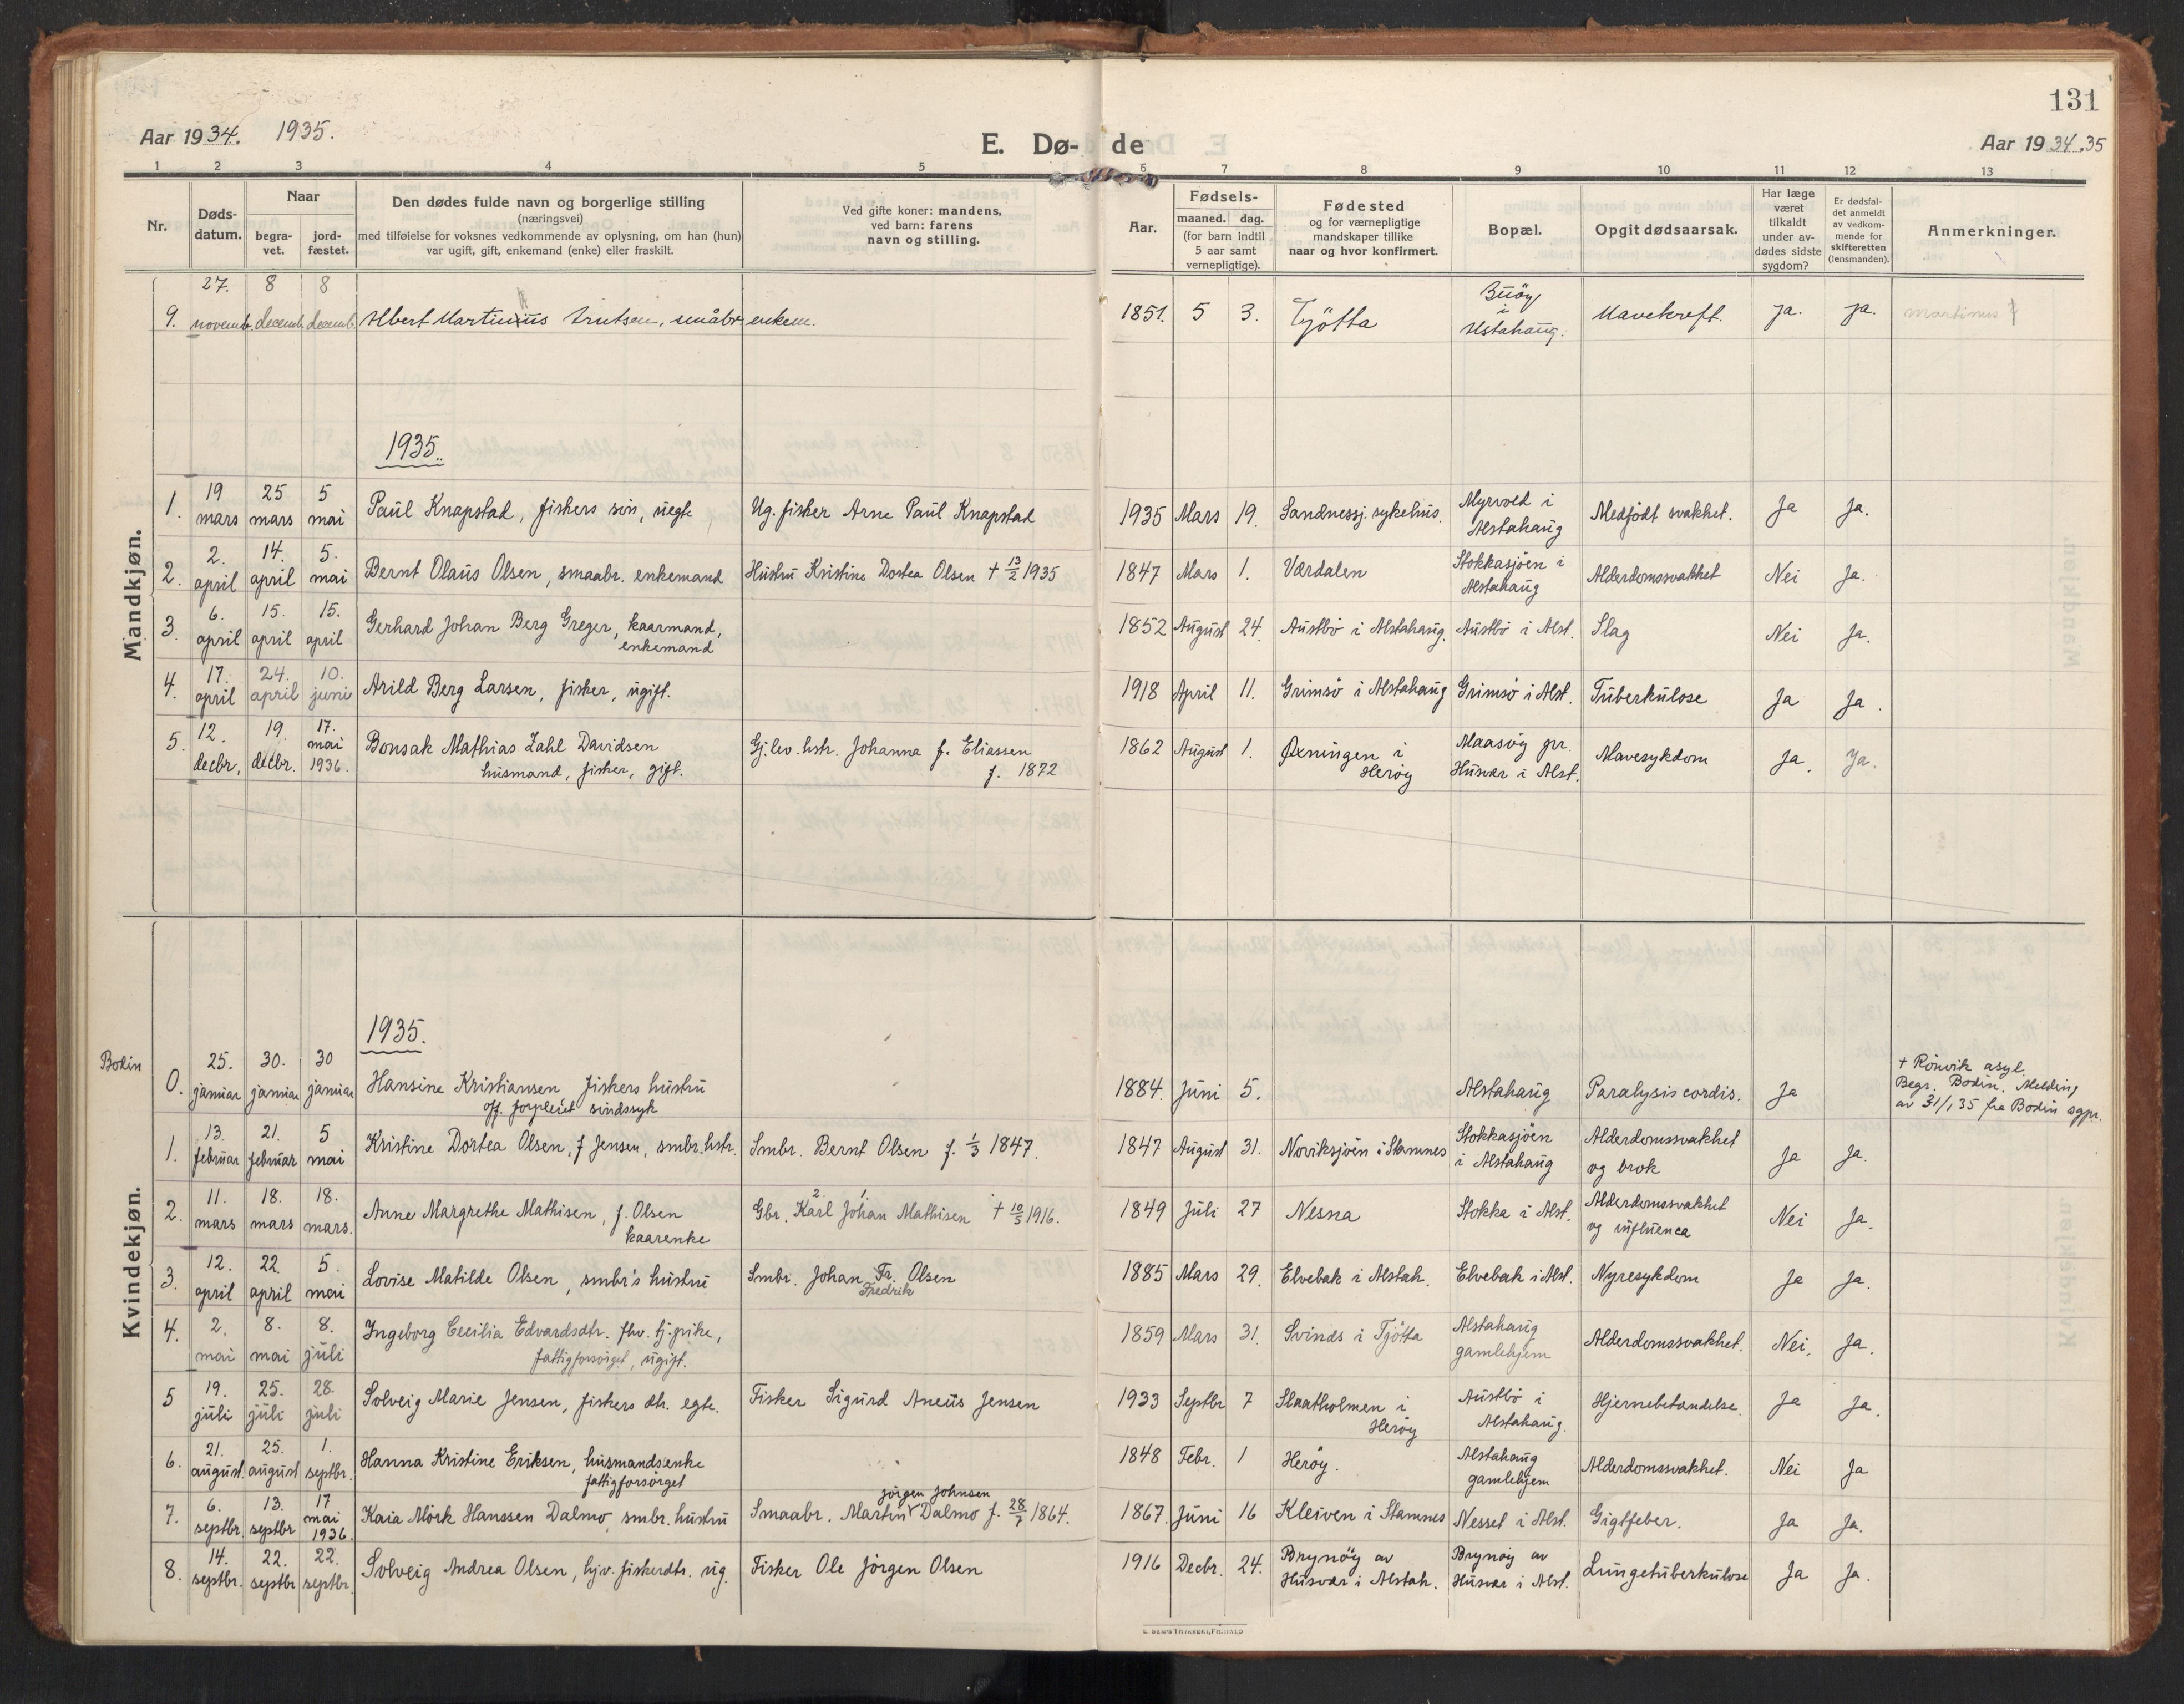 131
Aar 1934. 1935.
E. Dø- de
Aar 1934.35
1 2 3 4 5 6 7 8 9 10 11 12 13
Nr.
Døds-
datum.
Naar
begra-
vet.
jord-
fæstet.
Den dødes fulde navn og borgerlige stilling
(næringsvei)
med tilføielse for voksnes vedkommende av oplysning, om han (hun)
var ugift, gift, enkemand (enke) eller fraskilt.
Ved gifte koner: mandens,
ved barn: farens
navn og stilling.
Aar.
Fødsels-
maaned. dag.
(for barn indtil
5 aar samt
vernepligtige).
Fødested
og for værnepligtige
mandskaper tillike
naar og hvor konfirmert.
Bopæl.
Opgit dødsaarsak.
Har læge
været
tilkaldt
under av-
dødes sidste
sygdom?
Er dødsfal-
det anmeldt
av vedkom-
mende for
skifteretten
(lensmanden).
Anmerkninger.
Mandkjøn.
27. 8 8
9. novemb. decemb. decemb. Albert Martinius Knutsen, småbr. enkem. 1851. 5 3. Tjötta Buöy i Alstahaug. Mavekreft. Ja. Ja. Martinus
1935.
1. 19 mars 25 mars 5 mai Paul Knapstad, fiskers sön, uegte Ug. fisker Arne Paul Knapstad 1935 Mars 19. Sandnessj. sykehus. Myrvold i Alstahaug Medfödt svakhet. Ja Ja.
2. 2. april 14. april 5. mai Bernt Olaus Olsen, smaabr. enkemand Hustru Kristine Dortea Olsen † 13/2 1935 1847 Mars 1. Værdalen Stokkasjöen i Alstahaug Alderdomssvakhet Nei Ja.
3. 6. april 15. april 15. april Gerhard Johan Berg Greger, kaarmand, enkemand 1852 August 24. Austbö i Alstahaug. Austbö i Alst. Slag Nei Ja.
4. 17. april 24. april 10. juni Arild Berg Larsen, fisker, ugift. 1918 April 11. Grimsö i Alstahaug Grimsö i Alst. Tuberkulose Ja Ja.
5. 12. decbr. 19. decbr. 17. mai 1936. Bonsak Mathias Zahl Davidsen husmand, fisker, gift. Gj.lev. hstr. Johanna f. Eliassen f. 1872 1862 August 1. Øxningen i Heröy Maasöy pr. Husvær i Alst. Mavesykdom Ja. Ja.
Kvindekjøn.
1935.
Bodin 0. 25. januar 30. januar 30 januar Hansine Kristiansen fiskers hustru off. forpleiet sindssyk 1884. Juni 5. Alstahaug Paralysis cordis. Ja † Rönvik asyl. Begr. Bodin. Melding av 31/1 35 fra Bodin sgpr.
1. 13. februar 21. februar 5 mai Kristine Dortea Olsen, f Jensen, smbr. hstr. Smbr. Bernt Olsen f. 1/3 1847. 1847 August 31. Noviksjöen i Stamnes Stokkasjöen i Alstahaug Alderdomssvakhet og brok Ja Ja.
2. 11. mars 18. mars 18. mars. Anne Margrethe Mathisen, f. Olsen kaarenke Gbr. Karl 2. Johan 1. Mathisen † 10/5 1916. 1849 Juli 27 Nesna Stokka i Alst. Alderdomssvakhet og influenca Nei Ja.
3. 12. april 22. april 5. mai Lovise Matilde Olsen, smbr's hustru Smbr. Johan Fr. Olsen Fredrik 1885 Mars 29. Elvebak i Alstah. Elvebak i Alst. Nyresykdom Ja Ja.
4. 2. mai 8. mai 8. juli Ingeborg Cecilia Edvardsdtr. fhv. tj.pike, fattigforsörget, ugift. 1859 Mars 31. Svinds i Tjötta Alstahaug gamlehjem Alderdomssvakhet. Nei. Ja.
5 19. juli 25. juli 28. juli Solveig Marie Jensen, fiskers dtr. egte. Fisker Sigurd Aneus Jensen 1933 Septbr 7 Slaatholmen i Heröy Austbö i Alstahaug. Hjernebetendelse. Ja Ja.
6. 21. august. 25. august 1. septbr. Hanna Kristine Eriksen, husmandsenke fattigforsörget 1848 Febr. 1 Heröy. Alstahaug gamlehjem Alderdomssvakhet. Nei Ja
7. 6. septbr. 13. septbr 17 mai 1936. Kaia Mörk Hanssen Dalmo, smbr. hustru Smaabr. Martin Jörgen Johnsen Dalmo f. 28/7 1864. 1867. Juni 16 Kleiven i Stamnes Nesset i Alst. Gigtfeber. Ja Ja.
8. 14. septbr. 22. septbr 22. septbr. Solveig Andrea Olsen, hjv. fiskerdtr. ug. Fisker Ole Jörgen Olsen 1916 Decbr. 24. Brynöy av Husvær i Alstah. Brynöy av Husvær i Alst. Lungetuberkulose Ja Ja.